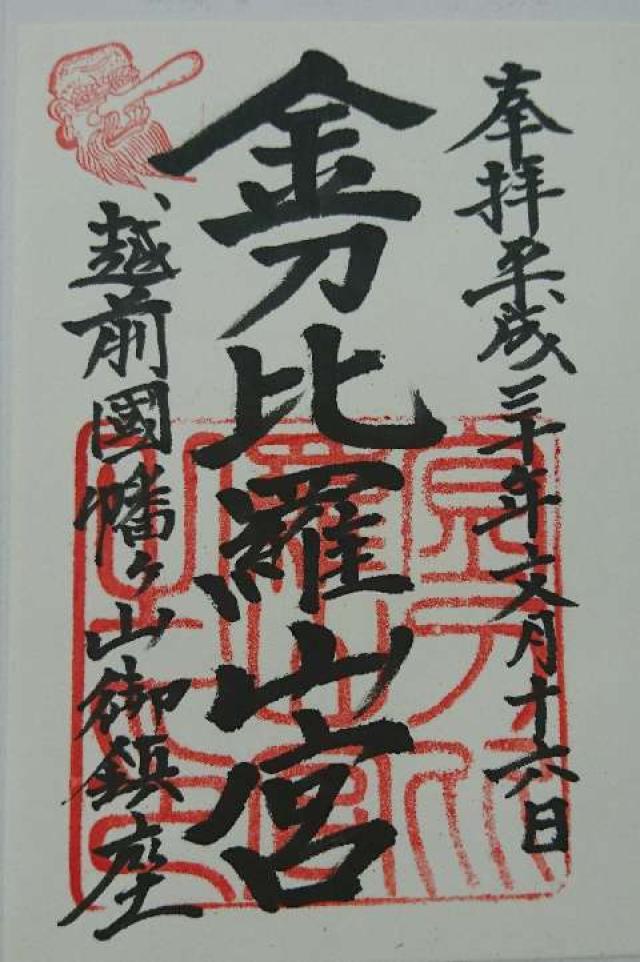 奉拝平成三十年文月十六日
金刀比羅山宮
越前國幡ヶ山御鎮座